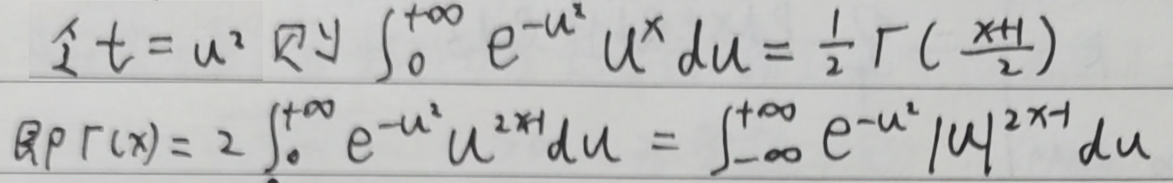 令 t = u² 则 ∫₀^{+∞} e^{-u²} u^x du = 1/2 Γ(x+1/2)
即 Γ(x) = 2 ∫₀^{+∞} e^{-u²} u^{2x-1} du = ∫_{-∞}^{+∞} e^{-u²} |u|^{2x-1} du